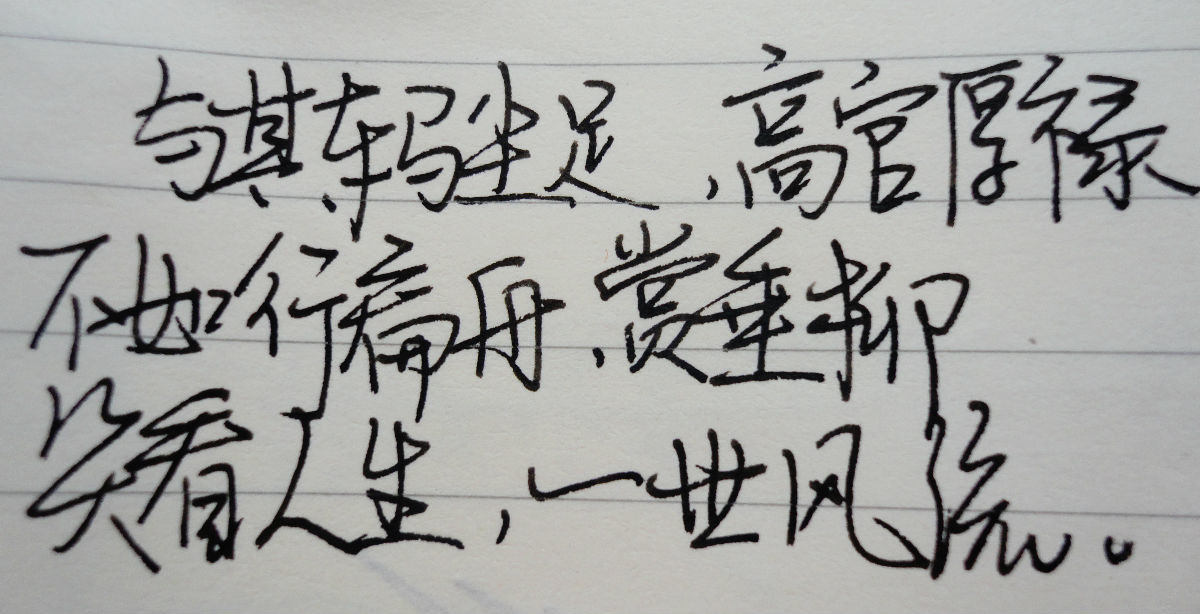 与其车马尘足，高官厚禄
不如行扁舟，赏垂柳
笑看人生，一世风流。